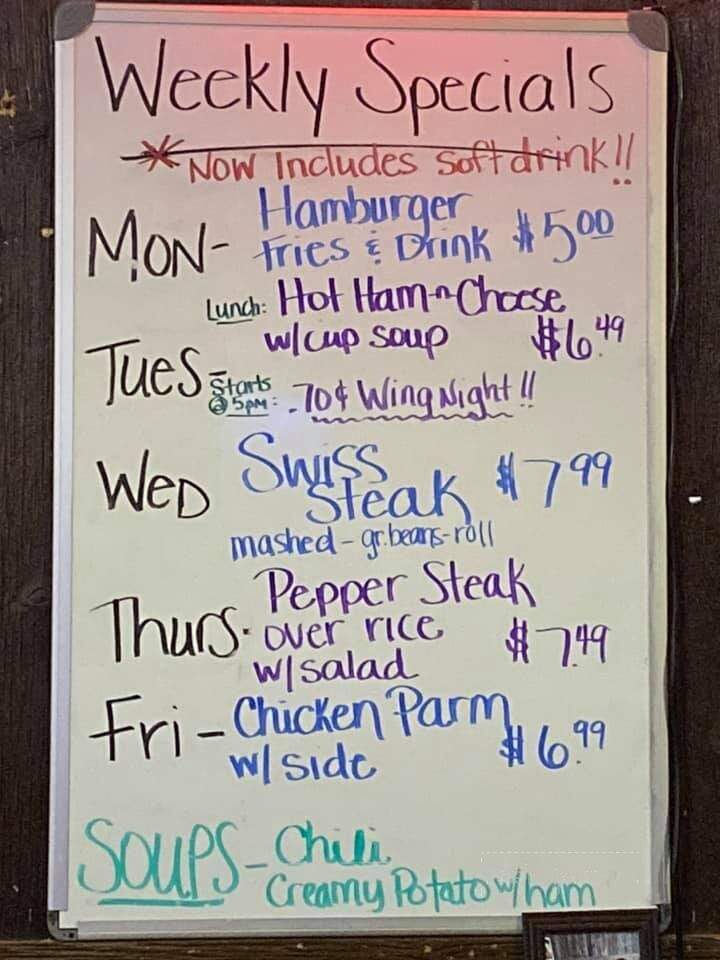 Weekly Specials
* NOW Includes Soft drink!!
MON- Hamburger
fries & Drink $5.00
Lunch: Hot Ham-n-Cheese
w/cup soup $6.49
TUES- Starts
@ 5PM: .70¢ Wing Night!!
WED Swiss
Steak $7.99
mashed - gr.beans-roll
Thurs. Pepper Steak
over rice
w/salad $7.49
Fri - Chicken Parm
w/ side $6.99
SOUPS - Chili
Creamy Potato w/ham